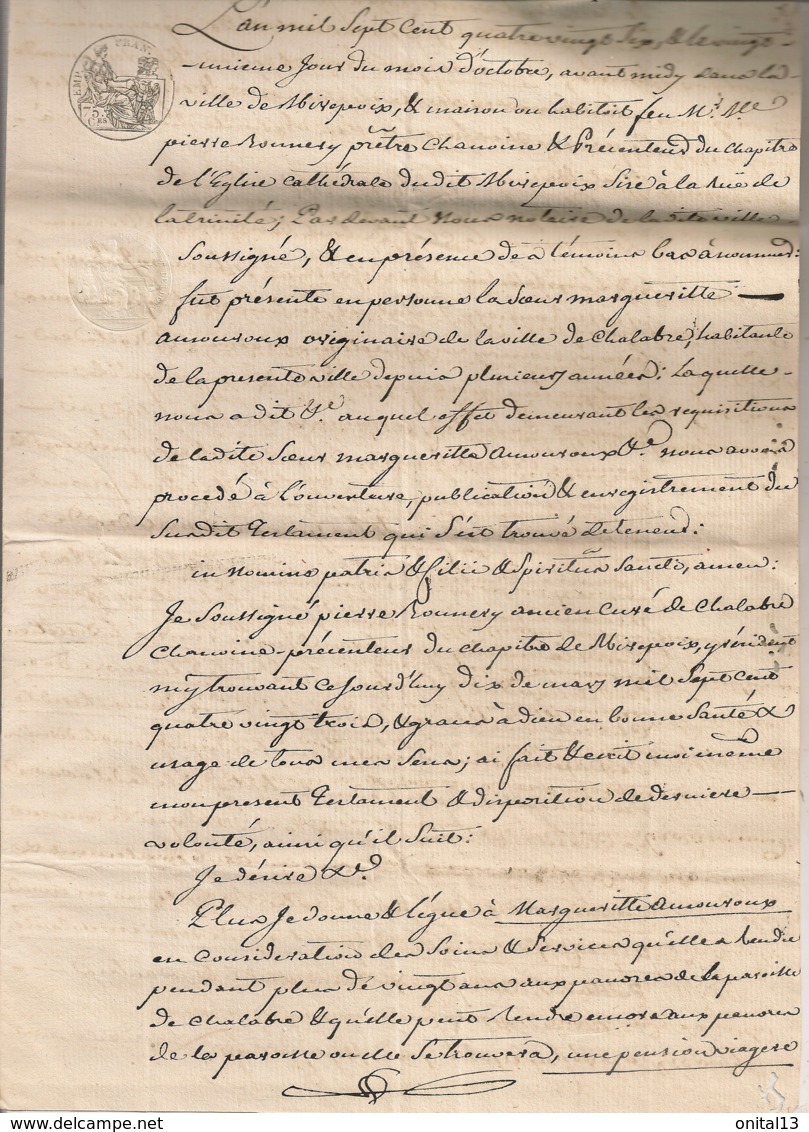 L'an mil sept cent quatre vingt six, & le vingt-
-unieme jour du mois d'octobre, avant midy dans la
ville de Mirepoix, & maison ou habitoit feu Mr. Me
pierre Rounery prêtre Chanoine & Précenteur du chapitre
de l'Eglise cathédrale dudit Mirepoix sise à la ruë de
la trinité; Pardevant nous notaire de la dite ville
soussigné, & en présence des témoins bas à nommer:
fut présente en personne la sœur margueritte
amouroux originaire de la ville de Chalabre, habitante
de la presente ville depuis plusieurs années; Laquelle
nous a dit &a. auquel effet demeurant les requisitions
de ladite sœur margueritte amouroux &a. nous avons
procedé à l'ouverture, publication & enregistrement du
susdit testament qui s'est trouvé de teneur:
in nomine patris & filii & spiritus sancti, amen:
Je soussigné pierre Rounery ancien curé de Chalabre
Chanoine-précenteur du chapitre de Mirepoix, y résident
m'y trouvant ce jourd'huy dix de mars mil sept cent
quatre vingt trois, & graces à dieu en bonne santé &
usage de tous mes sens; ai fait & écrit moi même
mon present testament & disposition de derniere
volonté, ainsi qu'il suit:
Je désire &a.
Plus je donne & légue à Margueritte Amouroux
en consideration des soins & services qu'elle a rendu
pendant plus de vingt ans aux pauvres de la paroisse
de Chalabre & qu'elle peut rendre encore aux pauvres
de la paroisse ou elle se trouvera, une pension viagere
EMP. FRAN.
onital13